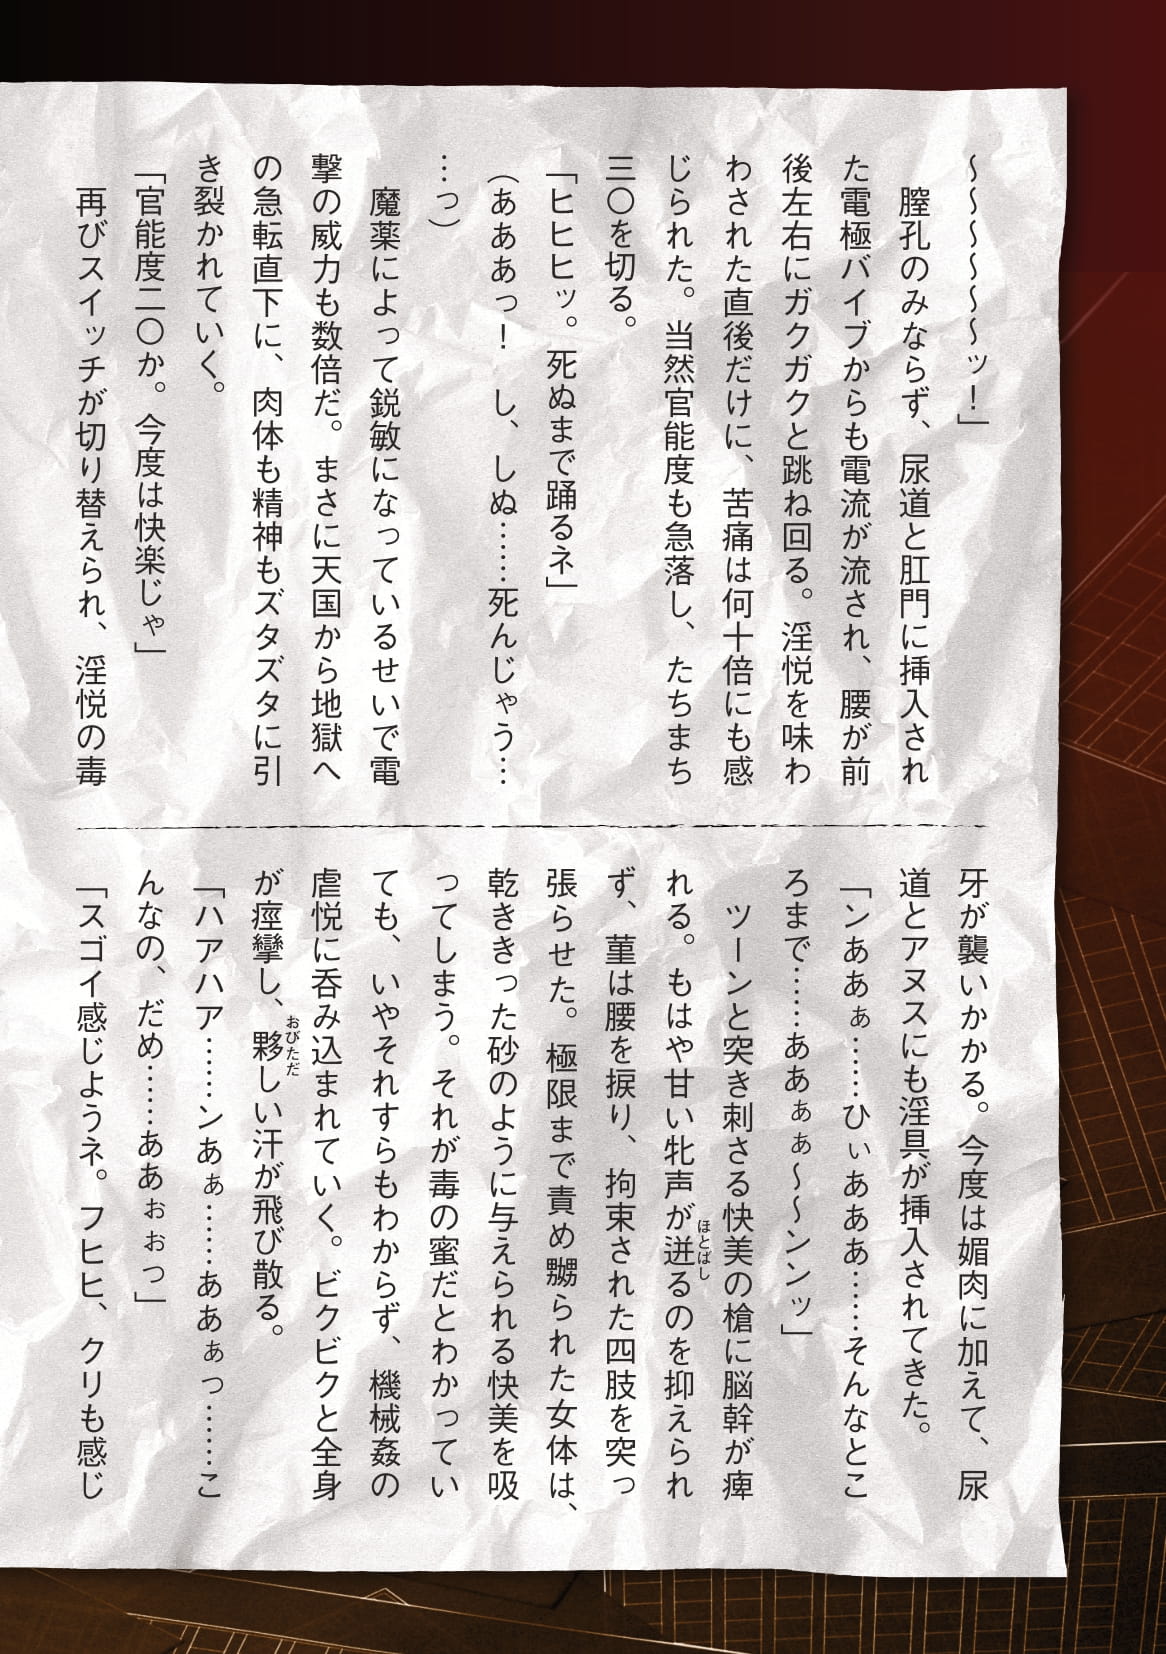 ～～～～～～ッ！」
膣孔のみならず、尿道と肛門に挿入され
た電極バイブからも電流が流され、腰が前
後左右にガクガクと跳ね回る。淫悦を味わ
わされた直後だけに、苦痛は何十倍にも感
じられた。当然官能度も急落し、たちまち
三〇を切る。
「ヒヒヒッ。死ぬまで踊るネ」
（あああっ！　し、しぬ……死んじゃう…
…っ）
魔薬によって鋭敏になっているせいで電
撃の威力も数倍だ。まさに天国から地獄へ
の急転直下に、肉体も精神もズタズタに引
き裂かれていく。
「官能度二〇か。今度は快楽じゃ」
再びスイッチが切り替えられ、淫悦の毒
牙が襲いかかる。今度は媚肉に加えて、尿
道とアヌスにも淫具が挿入されてきた。
「ンああぁ……ひぃあああ……そんなとこ
ろまで……ああぁぁ～～ンンッ」
ツーンと突き刺さる快美の槍に脳幹が痺
れる。もはや甘い牝声が迸るのを抑えられ
ほとばし
ず、菫は腰を捩り、拘束された四肢を突っ
張らせた。極限まで責め嬲られた女体は、
乾ききった砂のように与えられる快美を吸
ってしまう。それが毒の蜜だとわかってい
ても、いやそれすらもわからず、機械姦の
虐悦に呑み込まれていく。ビクビクと全身
が痙攣し、夥しい汗が飛び散る。
おびただ
「ハアハア……ンあぁ……ああぁっ……こ
んなの、だめ……ああぉぉっ」
「スゴイ感じようネ。フヒヒ、クリも感じ